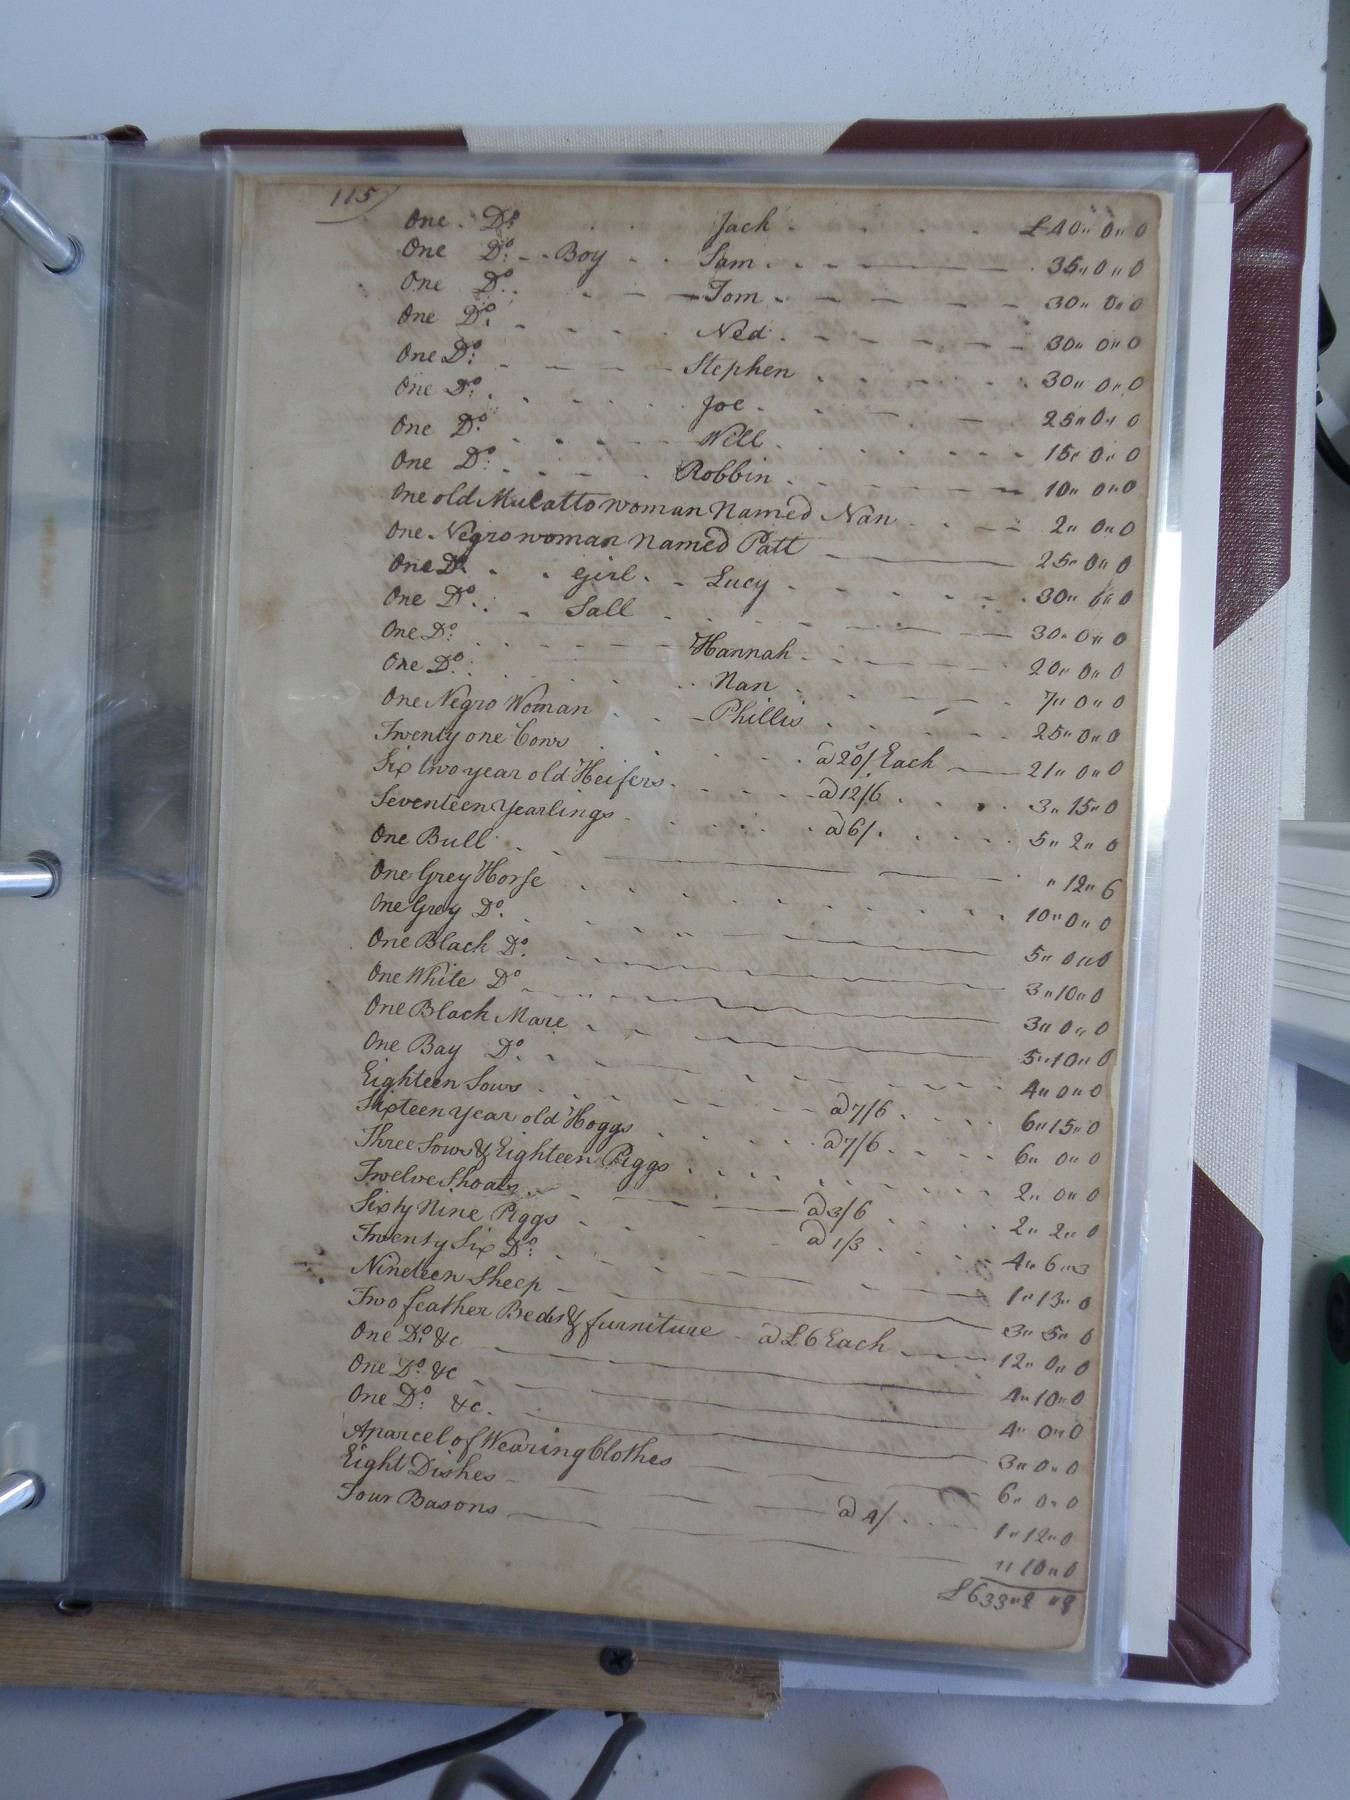 115
One . Do. Jack . . . . £40" 0" 0
One Do. - . Boy . . Sam . - - 35" 0" 0
One Do. . - - Tom . - - - 30" 0" 0
One Do. . - . Ned . - - - 30" 0" 0
One Do. - - - Stephen . . . . 30" 0" 0
One Do. . . . Joe . . - - 25" 0" 0
One Do. . . - - Will . . . . 15" 0" 0
One Do. . - . Robbin . . . - 10" 0" 0
One old Mulatto woman Named Nan . . - - 2" 0" 0
One Negro woman named Patt - 25" 0" 0
One Do. . . girl . - Lucy . . . . 30" 0" 0
One Do. . . - Sall . . . - 30" 0" 0
One Do. . . - Hannah . . - - 20" 0" 0
One Do. . . . Nan . . - - 7" 0" 0
One Negro Woman . . - Phillis . . . . 25" 0" 0
Twenty one Cows . . . . @ 20s/ Each - 21" 0" 0
Six two year old Heifers . . . - @ 12/6 . . . 3" 15" 0
Seventeen Yearlings . . . . @ 6/ . . . 5" 2" 0
One Bull . . - - " 12" 6
One Grey Horse . . . . 10" 0" 0
One Grey Do. . . - - 5" 0" 0
One Black Do. . - - 3" 10" 0
One White Do - - - 3" 0" 0
One Black Mare . . - - 5" 10" 0
One Bay Do. . - - - 4" 0" 0
Eighteen Sows . . - - @ 7/6 . . . 6" 15" 0
Sixteen year old Hoggs . . . . @ 7/6 . . . 6" 0" 0
Three Sows & Eighteen Piggs . . . . 2" 0" 0
Twelve Shoats . . - - @ 3/6 . . . 2" 2" 0
Sixty Nine Piggs . . - - @ 1/3 . . . 4" 6" 3
Twenty Six Do. . - - - 1" 13" 0
Nineteen Sheep - - 3" 5" 0
Two feather Beds & furniture - @ £6 Each - - 12" 0" 0
One Do. &c - 4" 10" 0
One Do. &c - - 4" 0" 0
One Do. &c. - 3" 0" 0
A parcel of Wearing Clothes - - 6" 0" 0
Eight Dishes - - - @ 4/ . . . 1" 12" 0
Four Basons - - " 10" 0
£633"2 "9